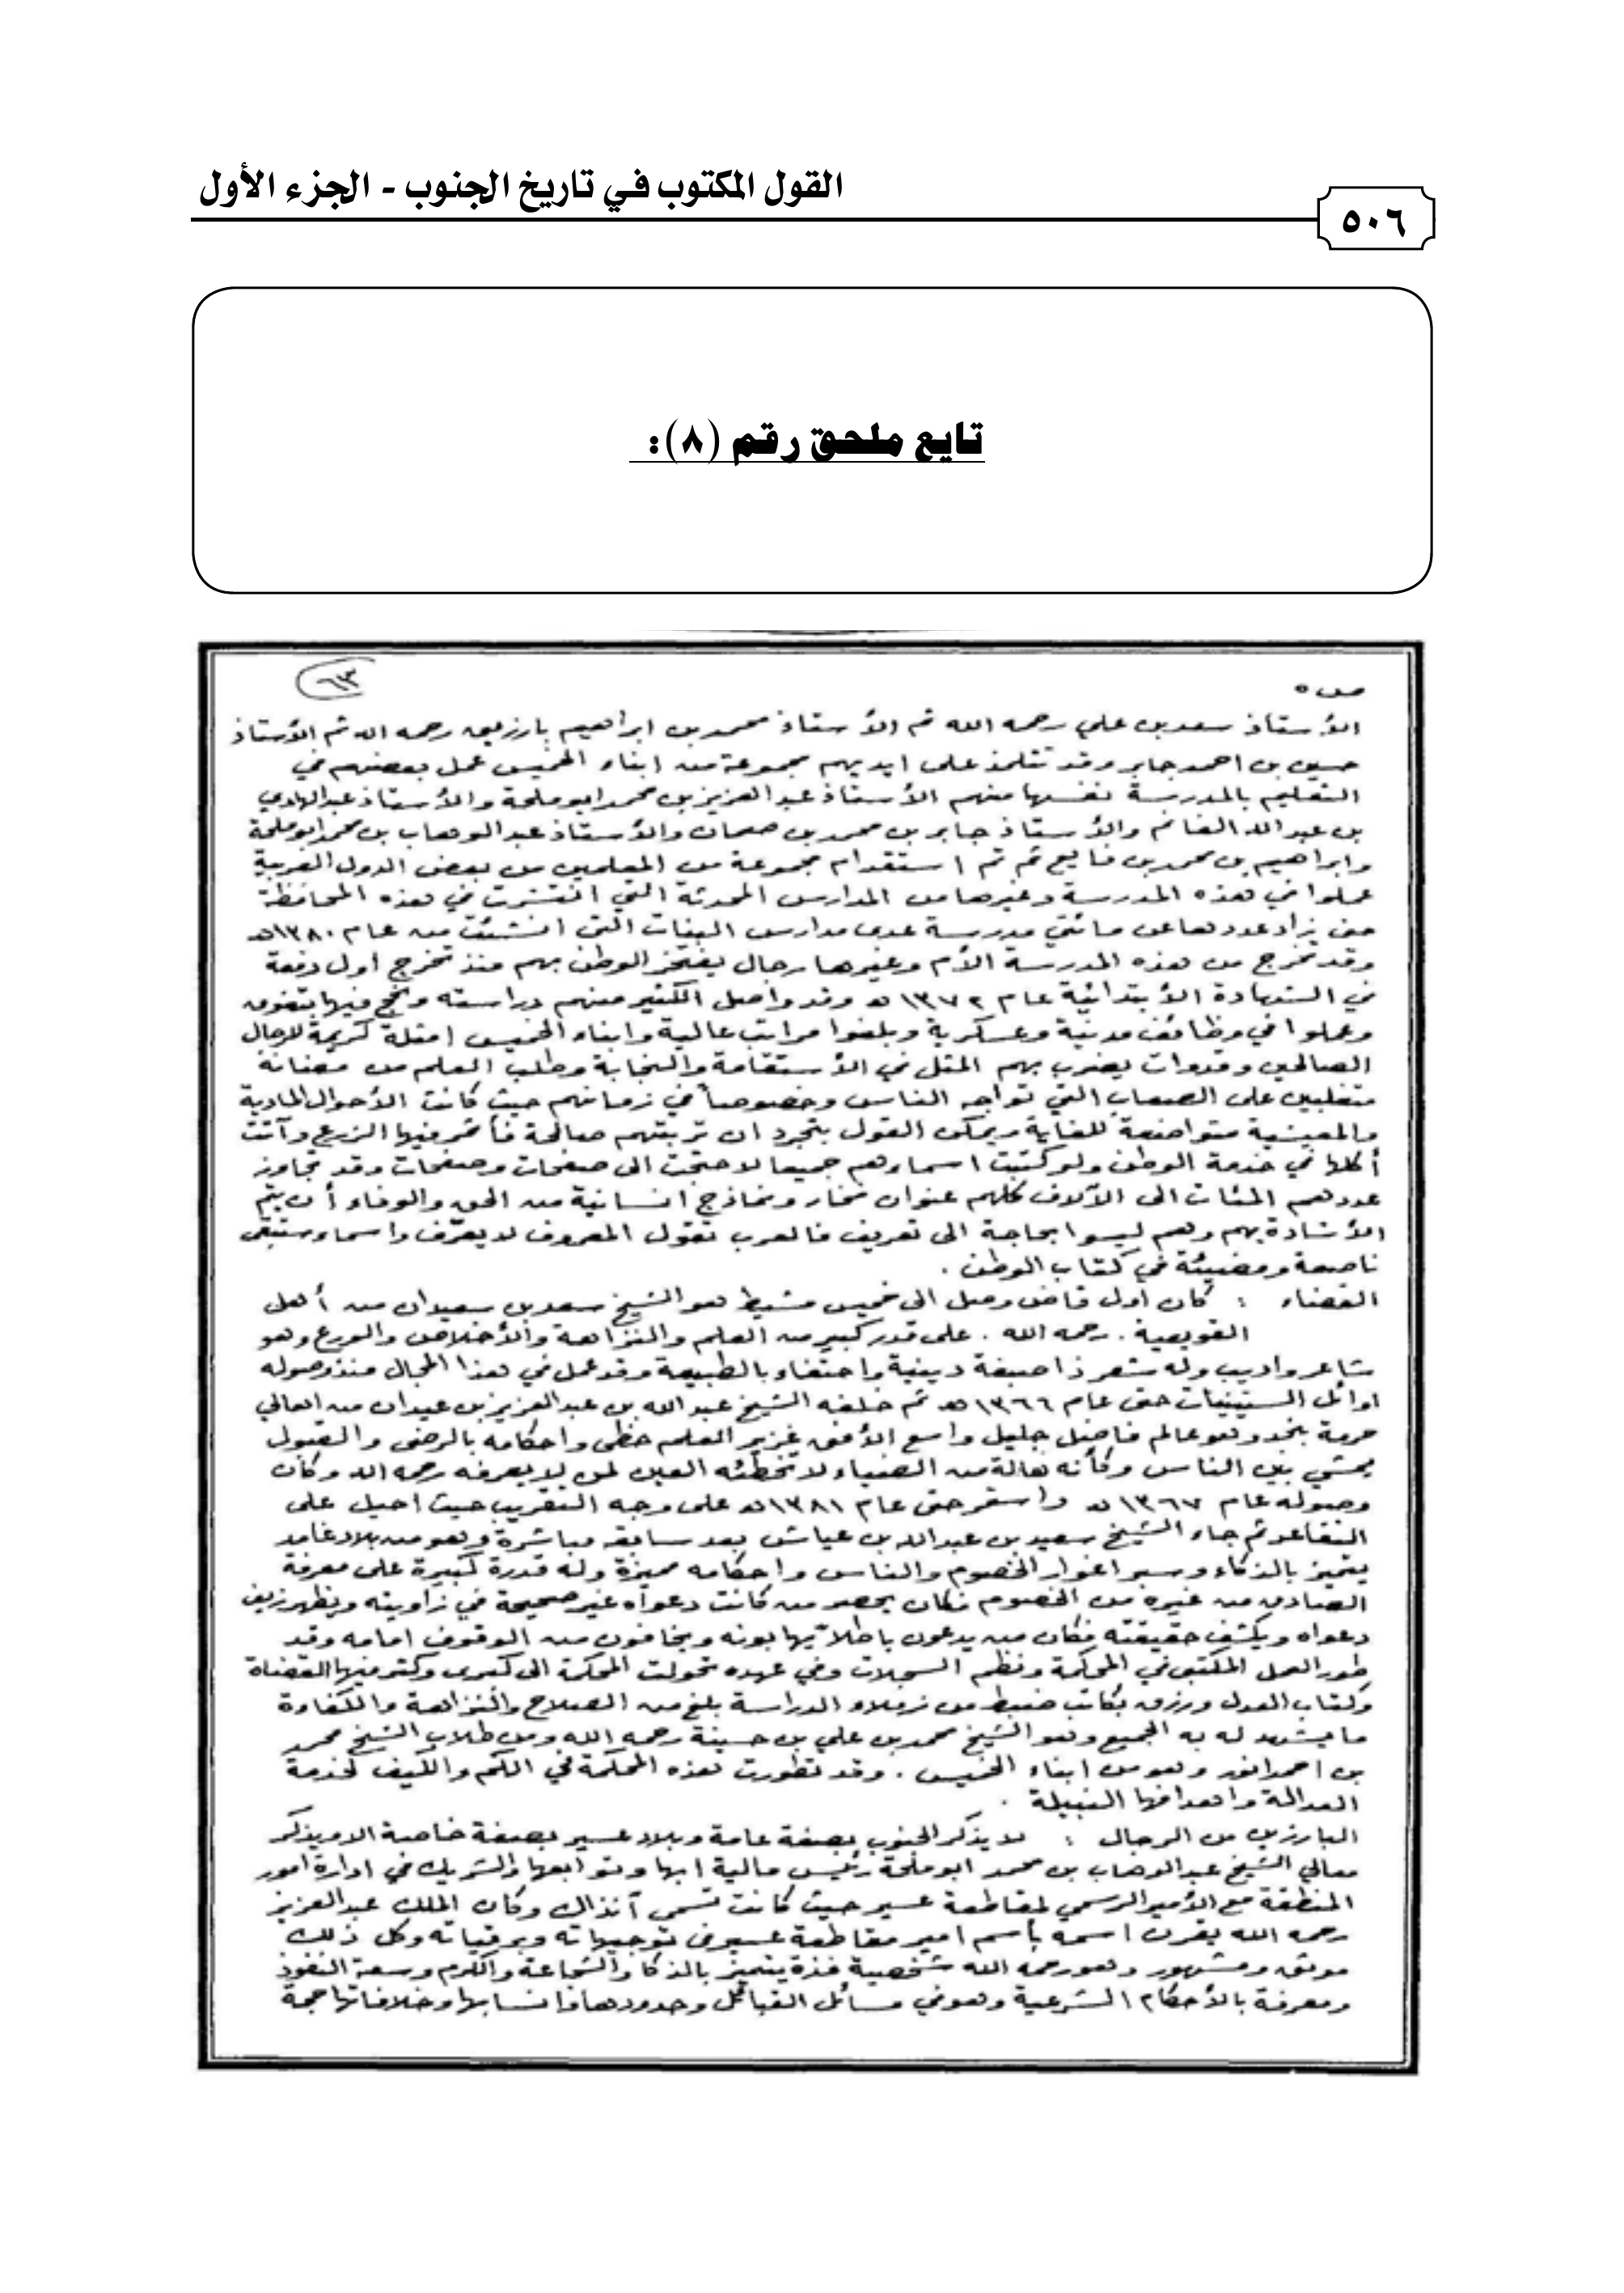 القول المكتوب في تاريخ الجنوب - الجزء الأول
٥٠٦
تابع ملحق رقم (٨):
٦٣
ص ٥
الأستاذ سعد بن علي رحمه الله ثم الأستاذ محمد بن ابراهيم بارزيق رحمه الله ثم الأستاذ
حسين بن احمد جابر وقد تتلمذ على ايديهم مجموعة من ابناء الخميس عمل بعضهم في
التعليم بالمدرسة نفسها منهم الأستاذ عبد العزيز بن محمد ابو ملحة والأستاذ عبد الهادي
بن عبد الله الغانم والأستاذ جابر بن محمد بن صمان والأستاذ عبد الوهاب بن محمد ابو ملحة
وابراهيم بن محمد بن فايع ثم تم استقدام مجموعة من المعلمين من بعض الدول العربية
عملوا في هذه المدرسة وغيرها من المدارس المحدثة التي انتشرت في هذه المحافظة
حتى زاد عددها عن مائتي مدرسة عدى مدارس البنات التي انشئت من عام ١٣٨٠هـ
وقد تخرج من هذه المدرسة الأم وغيرها رجال يفتخر الوطن بهم منذ تخرج اول دفعة
في الشهادة الأبتدائية عام ١٣٧٢ هـ وقد واصل الكثير منهم دراسته ونجح فيها بتفوق
وعملوا في وظائف مدنية وعسكرية وبلغوا مراتب عالية وابناء الخميس امثلة كريمة للرجال
الصالحين وقدوات يضرب بهم المثل في الأستقامة والنجابة وطلب العلم من مضانة
متغلبين على الصعاب التي تواجه الناس وخصوصاً في زمانهم حيث كانت الأحوال المادية
والمعيشية متواضعة للغاية ويمكن القول بتجرد ان تربتهم صالحة فأثمر فيها الزرع وآتت
أكلها في خدمة الوطن ولو كتبت اسماءهم جميعا لاحتجت الى صفحات وصفحات وقد تجاوز
عددهم المئات الى الآلاف كلهم عنوان فخار ونماذج انسانية من الحق والوفاء أن يتم
الأشادة بهم وهم ليسوا بحاجة الى تعريف فالعرب تقول المعروف لا يعرّف واسماء ستبقى
ناصعة ومضيئة في كتاب الوطن .
القضاء : كان اول قاض وصل الى خميس مشيط هو الشيخ سعد بن سعيدان من أهل
القويعية . رحمه الله . على قدر كبير من العلم والنزاهة والأخلاص والورع وهو
شاعر واديب وله شعر ذا صبغة دينية واحتفاء بالطبيعة وقد عمل في هذا المجال منذ وصوله
اوائل الستينيات حتى عام ١٣٦٦ هـ ثم خلفه الشيخ عبد الله بن عبد العزيز بن عيدان من اهالي
حرمة بنجد وهو عالم فاضل جليل واسع الأفق غزير العلم حظي واحكامه بالرضى والقبول
يمشي بين الناس وكأنه هالة من الضياء لا تخطئه العين لمن لا يعرفه رحمه الله وكان
وصوله عام ١٣٦٧ هـ واستمر حتى عام ١٣٨١ هـ على وجه التقريب حيث احيل على
التقاعد ثم جاء الشيخ سعيد بن عبد الله بن عياش بعد سابقه مباشرة وهو من بلاد غامد
يتميز بالذكاء وسبر اغوار الخصوم والناس واحكامه مميزة وله قدرة كبيرة على معرفة
الصادق من غيره من الخصوم فكان يحصر من كانت دعواه غير صحيحة في زاويته ويظهر زيف
دعواه ويكشف حقيقته فكان من يدعون باطلاً يهابونه ويخافون من الوقوف امامه وقد
طور العمل المكتبي في المحكمة ونظم السجلات وفي عهده تحولت المحكمة الى كبرى وكثر فيها القضاة
وكتاب العدل ورزق بكاتب ضبط من زملاء الدراسة بلغ من الصلاح والنزاهة والكفاءة
ما يشهد له به الجميع وهو الشيخ محمد بن علي بن حسينة رحمه الله ومن طلاب الشيخ محمد
بن احمد انور وهو من ابناء الخميس . وقد تطورت هذه المحكمة في الكم والكيف لخدمة
العدالة واهدافها النبيلة .
البارزين من الرجال : لا يذكر الجنوب بصفة عامة وبلاد عسير بصفة خاصة الا ويذكر
معالي الشيخ عبد الوهاب بن محمد ابو ملحة رئيس مالية ابها وتوابعها والشريك في ادارة امور
المنطقة مع الأمير الرسمي لمقاطعة عسير حيث كانت تسمى آنذاك وكان الملك عبد العزيز
رحمه الله يقرن اسمه بأسم امير مقاطعة عسير في توجيهاته وبرقياته وكل ذلك
موثق ومشهور وهو رحمه الله شخصية فذة يتميز بالذكاء والشجاعة والكرم وسعة النفوذ
ومعرفة بالأحكام الشرعية وهو في مسائل القبائل وحدودها وانسابها وخلافاتها حجة